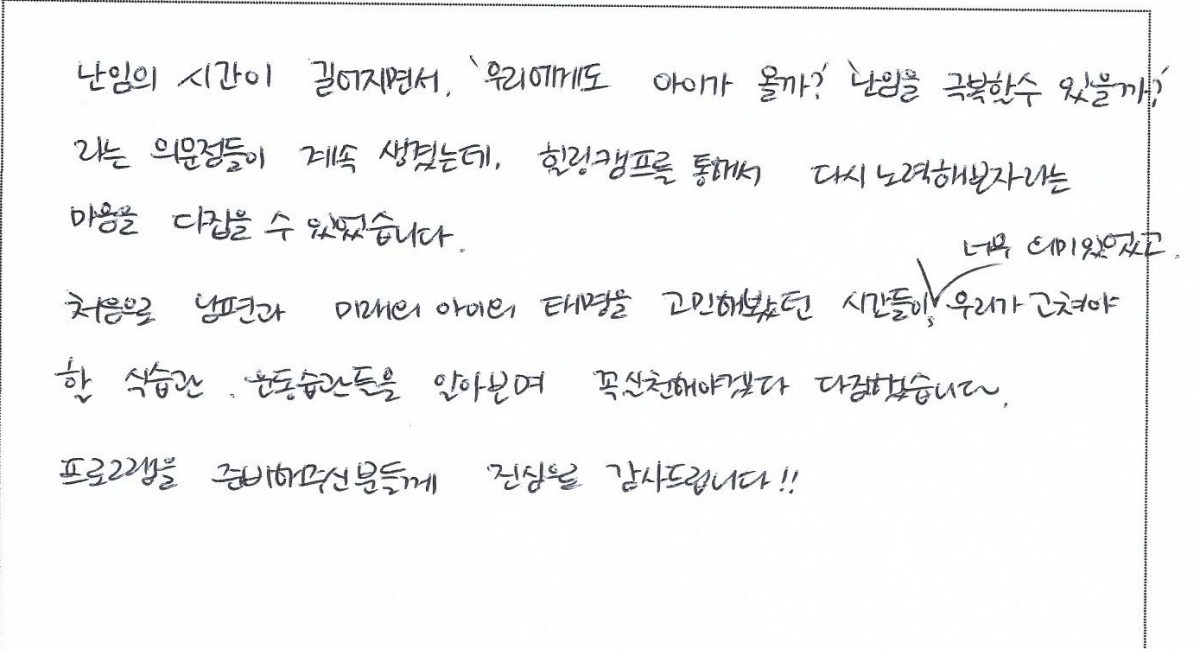 난임의 시간이 길어지면서, '우리에게도 아이가 올까?' '난임을 극복할수 있을까?'
라는 의문점들이 계속 생겼는데, 힐링캠프를 통해서 다시 노력해보자라는
마음을 다잡을 수 있었습니다.
너무 의미있었고,
처음으로 남편과 미래의 아이의 태명을 고민해봤던 시간들이, 우리가 고쳐야
할 식습관, 운동습관들을 알아보며 꼭실천해야겠다 다짐했습니다.
프로그램을 준비해주신분들께 진심으로 감사드립니다!!